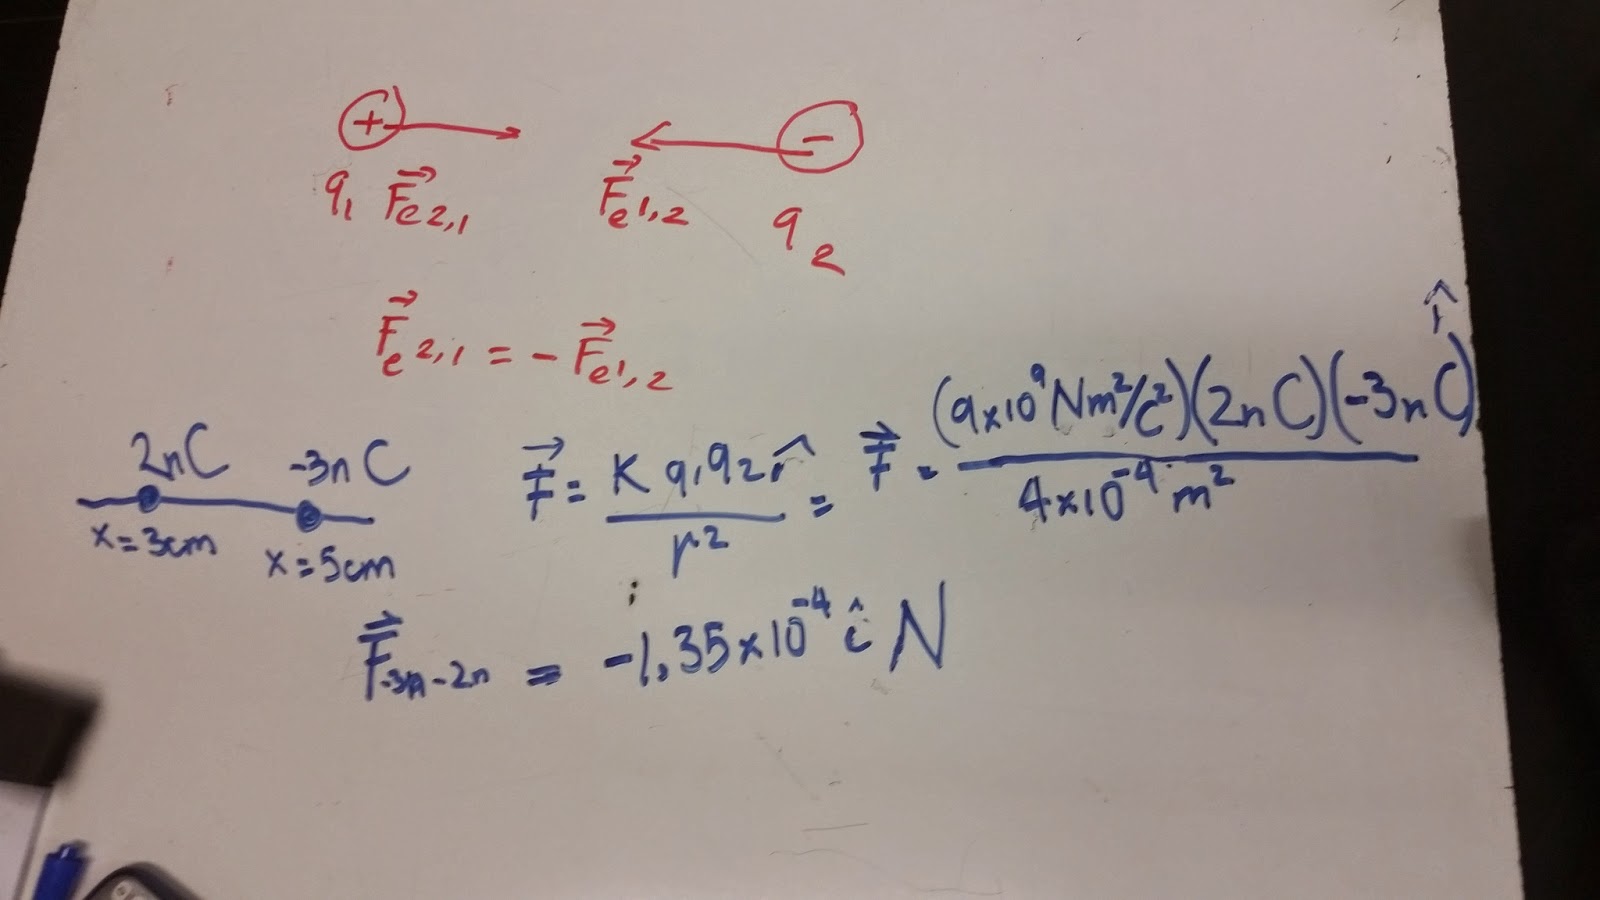 + −
q₁ F⃗e2,1 F⃗e1,2 q₂
F⃗e2,1 = − F⃗e1,2
2nC -3nC
x=3cm x=5cm
F⃗ = K q₁q₂ r̂ / r² = F⃗ = (9×10⁹Nm²/C²)(2nC)(-3nC) r̂ / 4×10⁻⁴ m²
F⃗-3n-2n = -1,35×10⁻⁴ î N